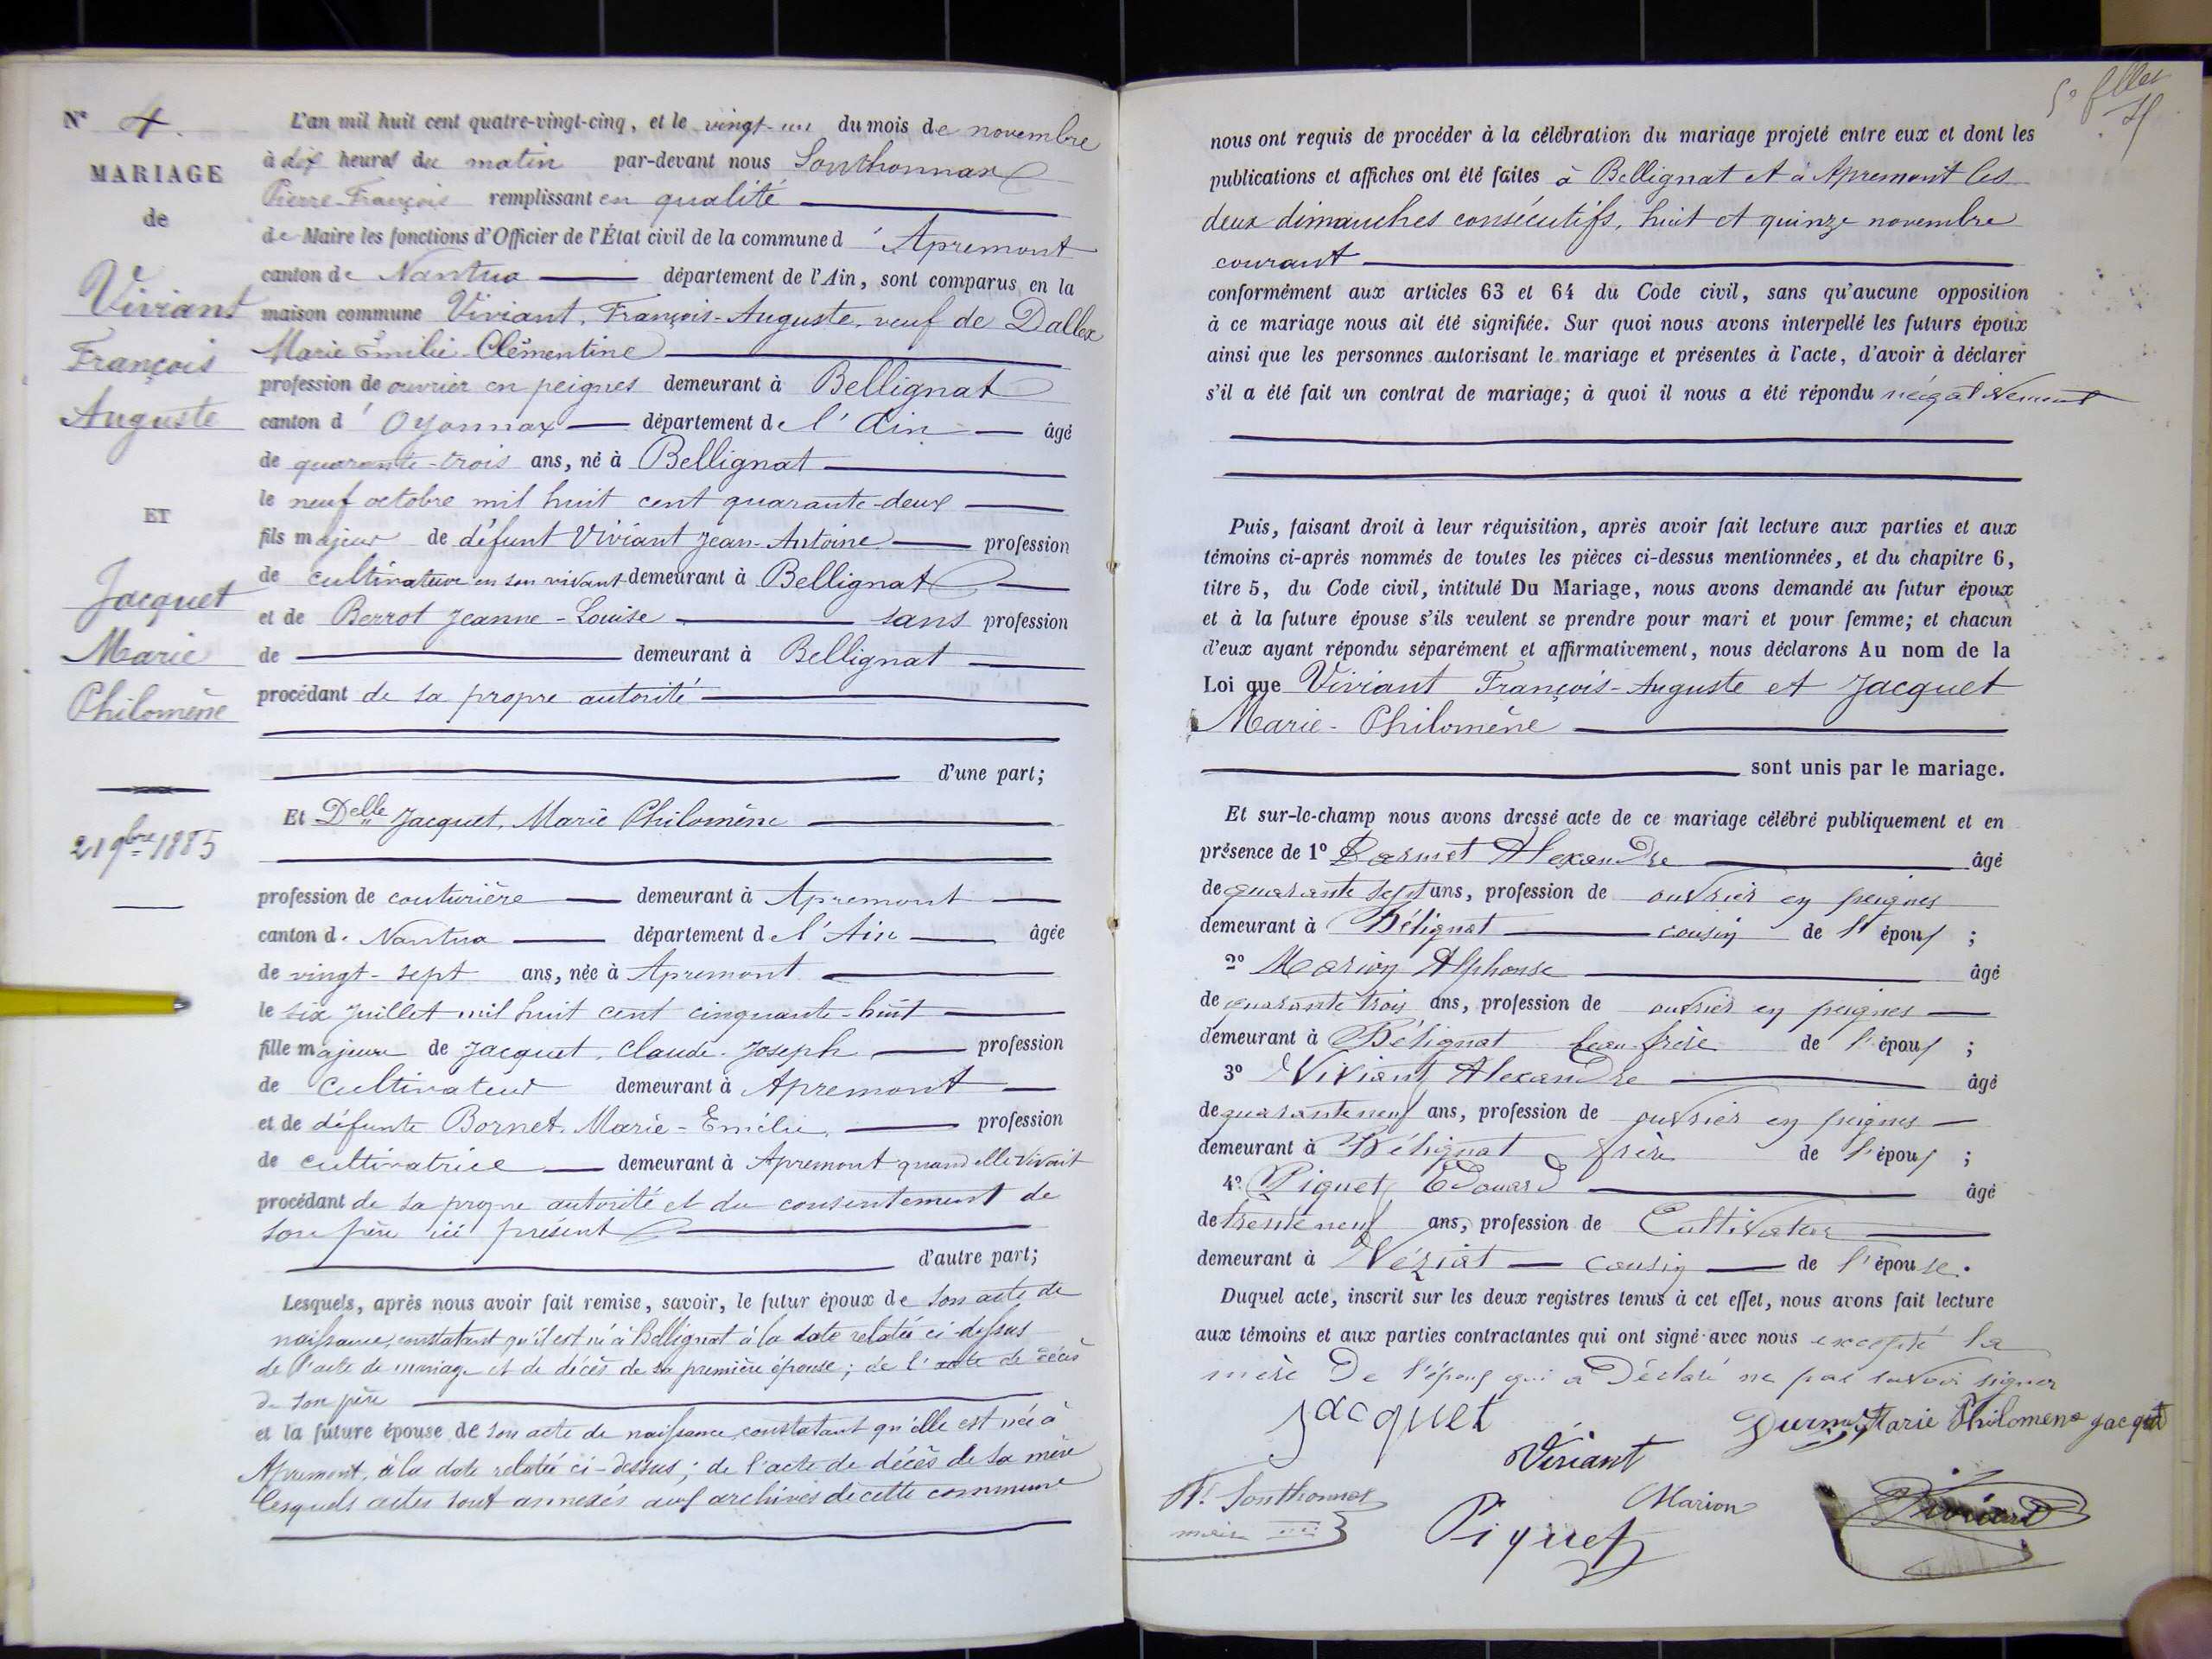 Nº 4.
MARIAGE
de
Viviant
François
Auguste
ET
Jacquet
Marie
Philomène
21 9bre 1885
L'an mil huit cent quatre-vingt-cinq, et le vingt-un du mois de novembre
à dix heures du matin par-devant nous Sonthonnax
Pierre-François remplissant en qualité
de Maire les fonctions d'Officier de l'État civil de la commune d'Apremont
canton de Nantua département de l'Ain, sont comparus en la
maison commune Viviant, François-Auguste, veuf de Dallex
Marie Émilie-Clémentine
profession de ouvrier en peignes demeurant à Bellignat
canton d'Oyonnax département de l'Ain âgé
de quarante-trois ans, né à Bellignat
le neuf octobre mil huit cent quarante-deux
fils majeur de défunt Viviant Jean-Antoine profession
de cultivateur en son vivant demeurant à Bellignat
et de Berrot Jeanne-Louise sans profession
de demeurant à Bellignat
procédant de sa propre autorité
d'une part;
Et Delle Jacquet, Marie Philomène
profession de couturière demeurant à Apremont
canton de Nantua département de l'Ain âgée
de vingt-sept ans, née à Apremont
le six Juillet mil huit cent cinquante-huit
fille majeure de Jacquet, Claude-Joseph profession
de cultivateur demeurant à Apremont
et de défunte Bornet, Marie-Émélie, profession
de cultivatrice demeurant à Apremont quand elle vivait
procédant de sa propre autorité et du consentement de
son père ici présent
d'autre part;
Lesquels, après nous avoir fait remise, savoir, le futur époux de son acte de
naissance, constatant qu'il est né à Bellignat à la date relatée ci-dessus
de l'acte de mariage et de décès de sa première épouse; de l'acte de décès
de son père
et la future épouse de son acte de naissance, constatant qu'elle est née à
Apremont, à la date relatée ci-dessus; de l'acte de décès de sa mère
lesquels actes sont annexés aux archives de cette commune
nous ont requis de procéder à la célébration du mariage projeté entre eux et dont les
publications et affiches ont été faites à Bellignat et à Apremont les
deux dimanches consécutifs, huit et quinze novembre
courant
conformément aux articles 63 et 64 du Code civil, sans qu'aucune opposition
à ce mariage nous ait été signifiée. Sur quoi nous avons interpellé les futurs époux
ainsi que les personnes autorisant le mariage et présentes à l'acte, d'avoir à déclarer
s'il a été fait un contrat de mariage; à quoi il nous a été répondu négativement
Puis, faisant droit à leur réquisition, après avoir fait lecture aux parties et aux
témoins ci-après nommés de toutes les pièces ci-dessus mentionnées, et du chapitre 6,
titre 5, du Code civil, intitulé Du Mariage, nous avons demandé au futur époux
et à la future épouse s'ils veulent se prendre pour mari et pour femme; et chacun
d'eux ayant répondu séparément et affirmativement, nous déclarons Au nom de la
Loi que Viviant François-Auguste et Jacquet
Marie-Philomène
sont unis par le mariage.
Et sur-le-champ nous avons dressé acte de ce mariage célébré publiquement et en
présence de 1º Alexandre âgé
de quarante sept ans, profession de ouvrier en peignes
demeurant à Bélignat cousin de l'époux ;
2º Marion Alphonse âgé
de quarante trois ans, profession de ouvrier en peignes
demeurant à Bélignat beau-frère de l'époux ;
3º Viviant Alexandre âgé
de quarante neuf ans, profession de ouvrier en peignes
demeurant à Bélignat frère de l'époux ;
4º Piquet Edouard âgé
de trente neuf ans, profession de Cultivateur
demeurant à Néziat cousin de l'épouse.
Duquel acte, inscrit sur les deux registres tenus à cet effet, nous avons fait lecture
aux témoins et aux parties contractantes qui ont signé avec nous excepté la
mère De l'époux qui a Déclaré ne pas savoir signer
Jacquet
Marie Philomène Jacquet
Viviant
Sonthonnax
maire
Marion
Piquet
Viviant